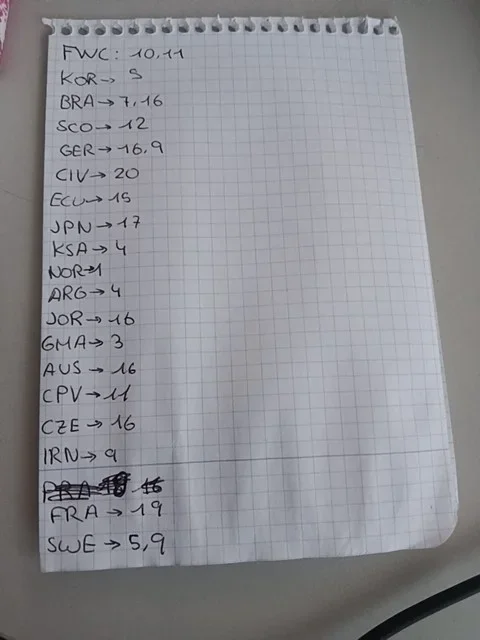 FWC: 10,11
KOR→ 5
BRA→7,16
SCO→12
GER→16,9
CIV→20
ECU→15
JPN→17
KSA→4
NOR→1
ARG→4
JOR→16
GMA→3
AUS→16
CPV→11
CZE→16
IRN→9
FRA→19
SWE→5,9